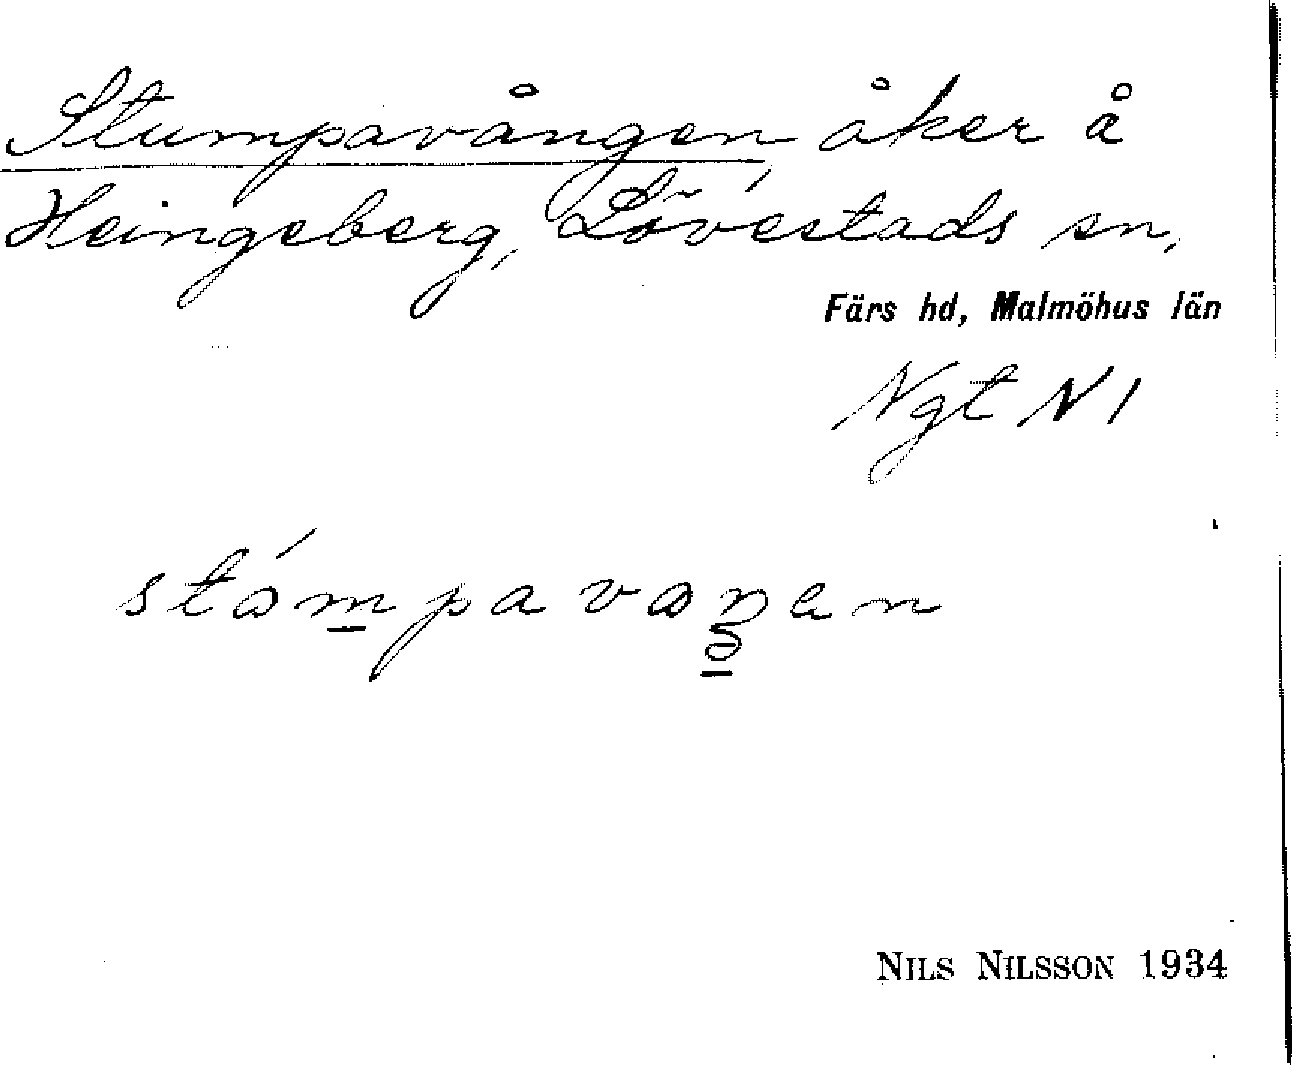 Stumpavången, åker å
Heingeberg, Lövestads sn,
Färs hd, Malmöhus län
Ngt N 1
stó̱mpavaŋ̱en
NILS NILSSON 1934